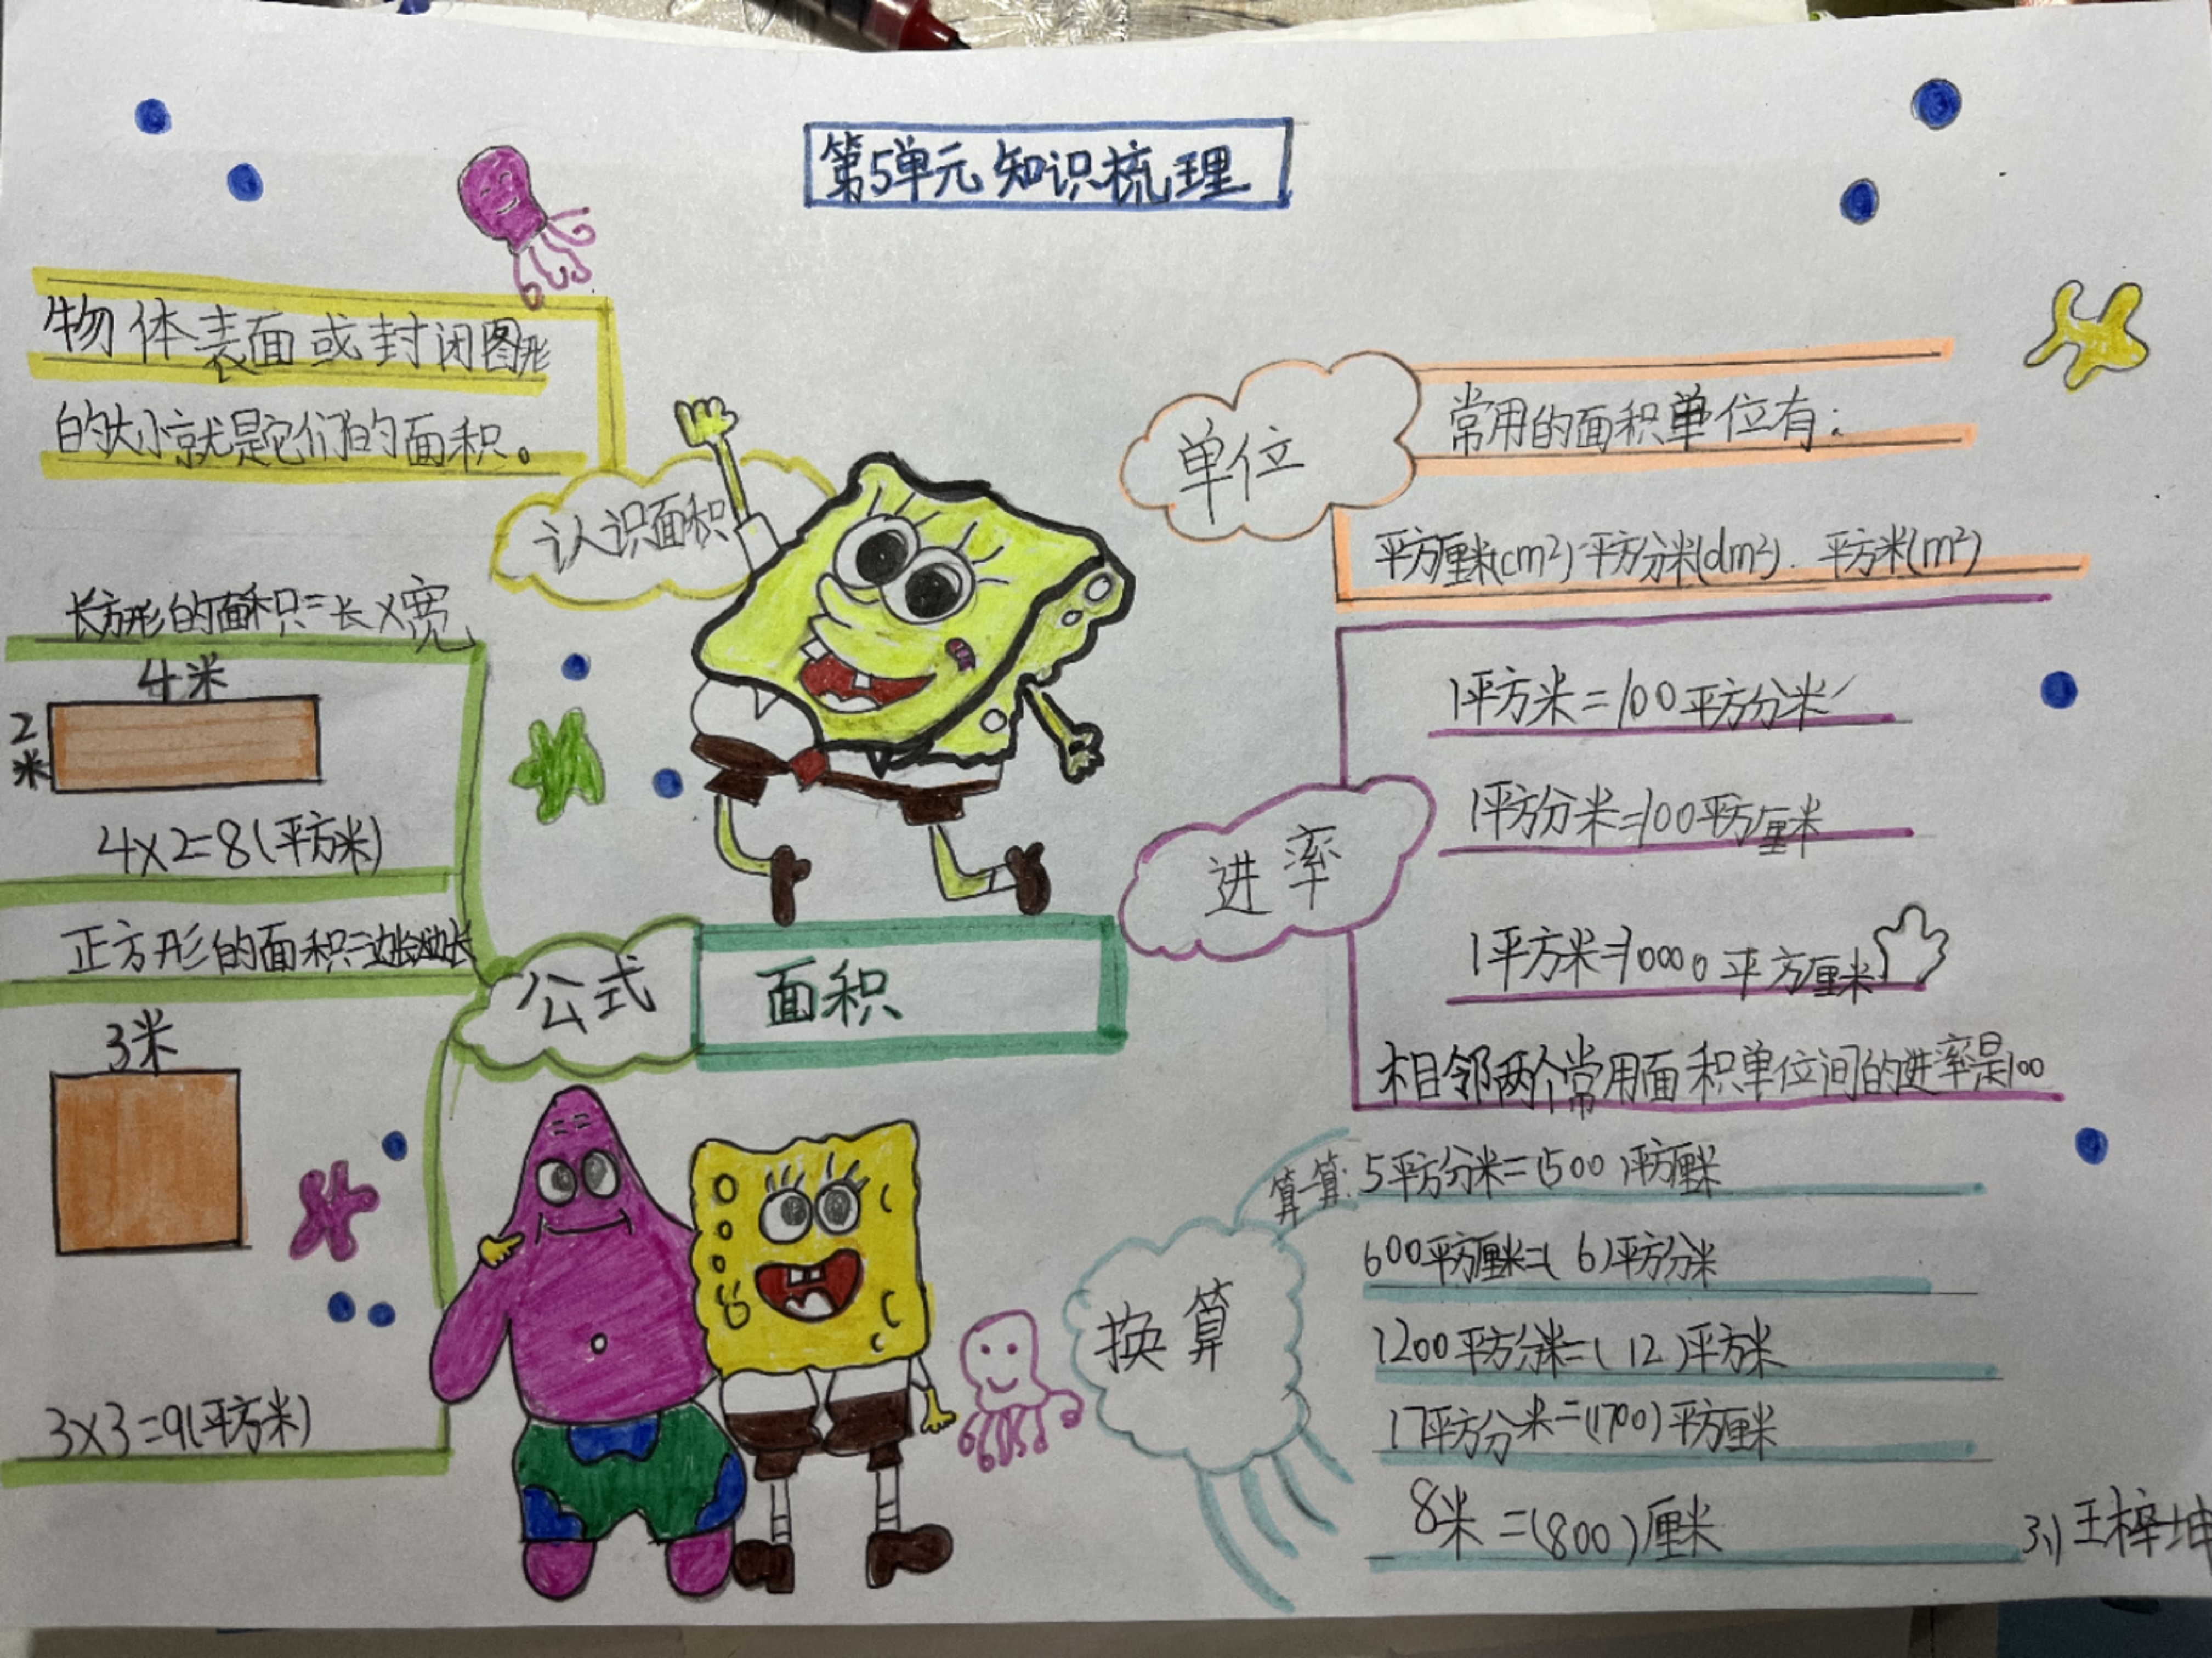 第5单元知识梳理
物体表面或封闭图形
的大小就是它们的面积。
认识面积
长方形的面积=长×宽
4米
2米
4×2=8(平方米)
正方形的面积=边长×边长
3米
3×3=9(平方米)
公式
面积
单位
常用的面积单位有:
平方厘米(cm²)平方分米(dm²).平方米(m²)
进率
1平方米=100平方分米
1平方分米=100平方厘米
1平方米=10000平方厘米
相邻两个常用面积单位间的进率是100
换算
算一算:5平方分米=(500)平方厘米
600平方厘米=(6)平方分米
1200平方分米=(12)平方米
17平方分米=(1700)平方厘米
8米=(800)厘米
3.1王梓坤